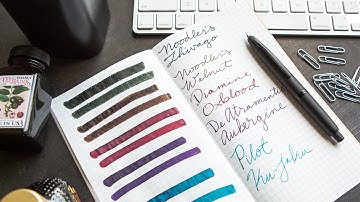 Noodler's
Zhivago
Noodler's
Walnut
Diamine
Oxblood
De Atramentis
Aubergine
Pilot
Ku-jaku
IN U.S.A